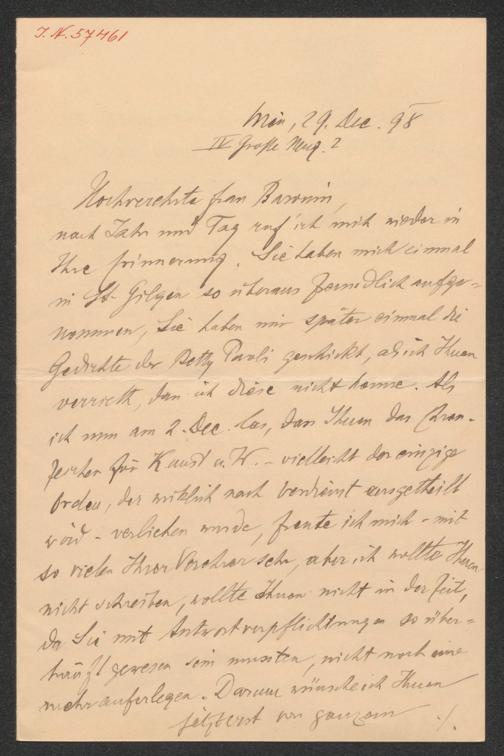 I.N. 57461
Wien, 29. Dec. 98
IV Große Neug. 2
Hochverehrte Frau Baronin,
nach Jahr und Tag ruf' ich mich wieder in
Ihre Erinnerung. Sie haben mich einmal
in St. Gilgen so überaus freundlich aufge-
nommen, Sie haben mir später einmal die
Gedichte der Betty Paoli geschickt, als ich Ihnen
verrieth, dass ich diese nicht kenne. Als
ich nun am 2. Dec. las, dass Ihnen das Ehren-
zeichen für Kunst u. W. – vielleicht der einzige
Orden, der wirklich nach Verdienst ausgetheilt
wird – verliehen wurde, freute ich mich – mit
so vielen Ihrer Verehrer sehr, aber ich wollte Ihnen
nicht schreiben, wollte Ihnen nicht in der Zeit,
da Sie mit Antwortverpflichtungen so über-
häuft gewesen sein mussten, nicht noch eine
mehr auferlegen. Darum wünsche ich Ihnen
jetzt erst von ganzem ./.